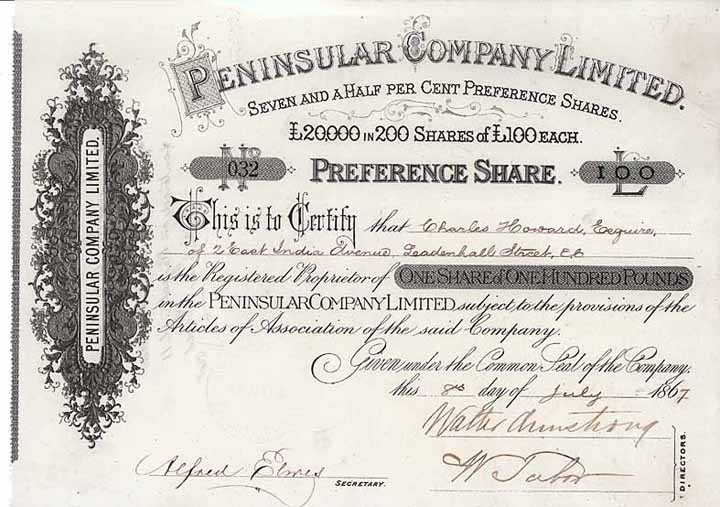 PENINSULAR COMPANY LIMITED.
PENINSULAR COMPANY LIMITED.
SEVEN AND A HALF PER CENT PREFERENCE SHARES.
£20,000 IN 200 SHARES of £100 EACH.
No 032 PREFERENCE SHARE. £100
This is to Certify that Charles Howard, Esquire,
of 2 East India Avenue, Leadenhall Street, EC
is the Registered Proprietor of ONE SHARE of ONE HUNDRED POUNDS
in the PENINSULAR COMPANY LIMITED subject to the provisions of the
Articles of Association of the said Company.
Given under the Common Seal of the Company.
this 8th day of July 1867
Walter Armstrong
Alfred Elwes W Tabor
SECRETARY.
DIRECTORS.